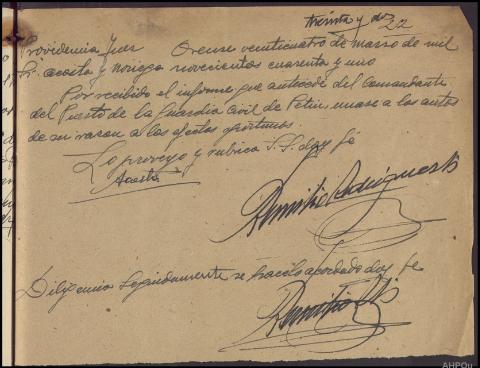 treinta y dos
22
Providencia Juez Orense veinticuatro de marzo de mil
Sr. Acosta y Noriega novecientos cuarenta y uno
Por recibido el informe que antecede del Comandante
del Puesto de la Guardia Civil de Petin, unase a los autos
de su razon a los efectos oportunos.
Lo proveyo y rubrica S.S. doy fé
Acosta
Diligencia Seguidamente se hace lo acordado doy fe
AHPOu